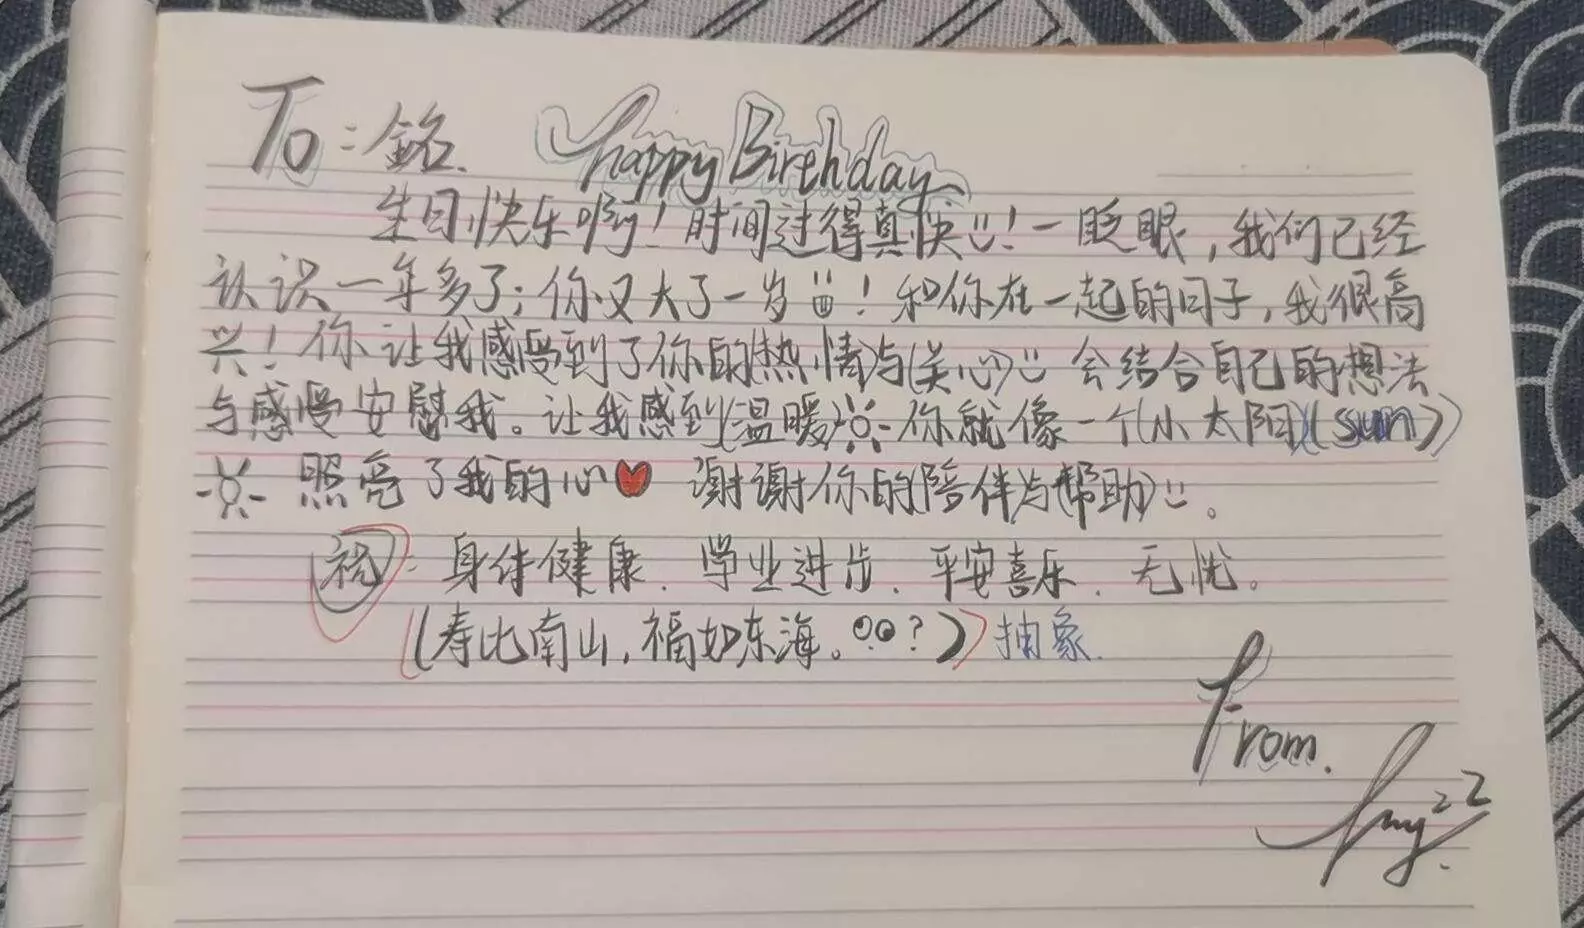 To：銘. happy Birthday
生日快乐啊！时间过得真快！一眨眼，我们已经
认识一年多了；你又大了一岁！和你在一起的日子，我很高
兴！你让我感受到了你的(热情)与(关心) 会结合自己的想法
与感受安慰我。让我感到(温暖) 你就像一个(小太阳)(sun)
照亮了我的心 谢谢你的(陪伴)与(帮助)。
祝：身体健康．学业进步．平安喜乐．无忧。
(寿比南山，福如东海。？) 抽象.
From.